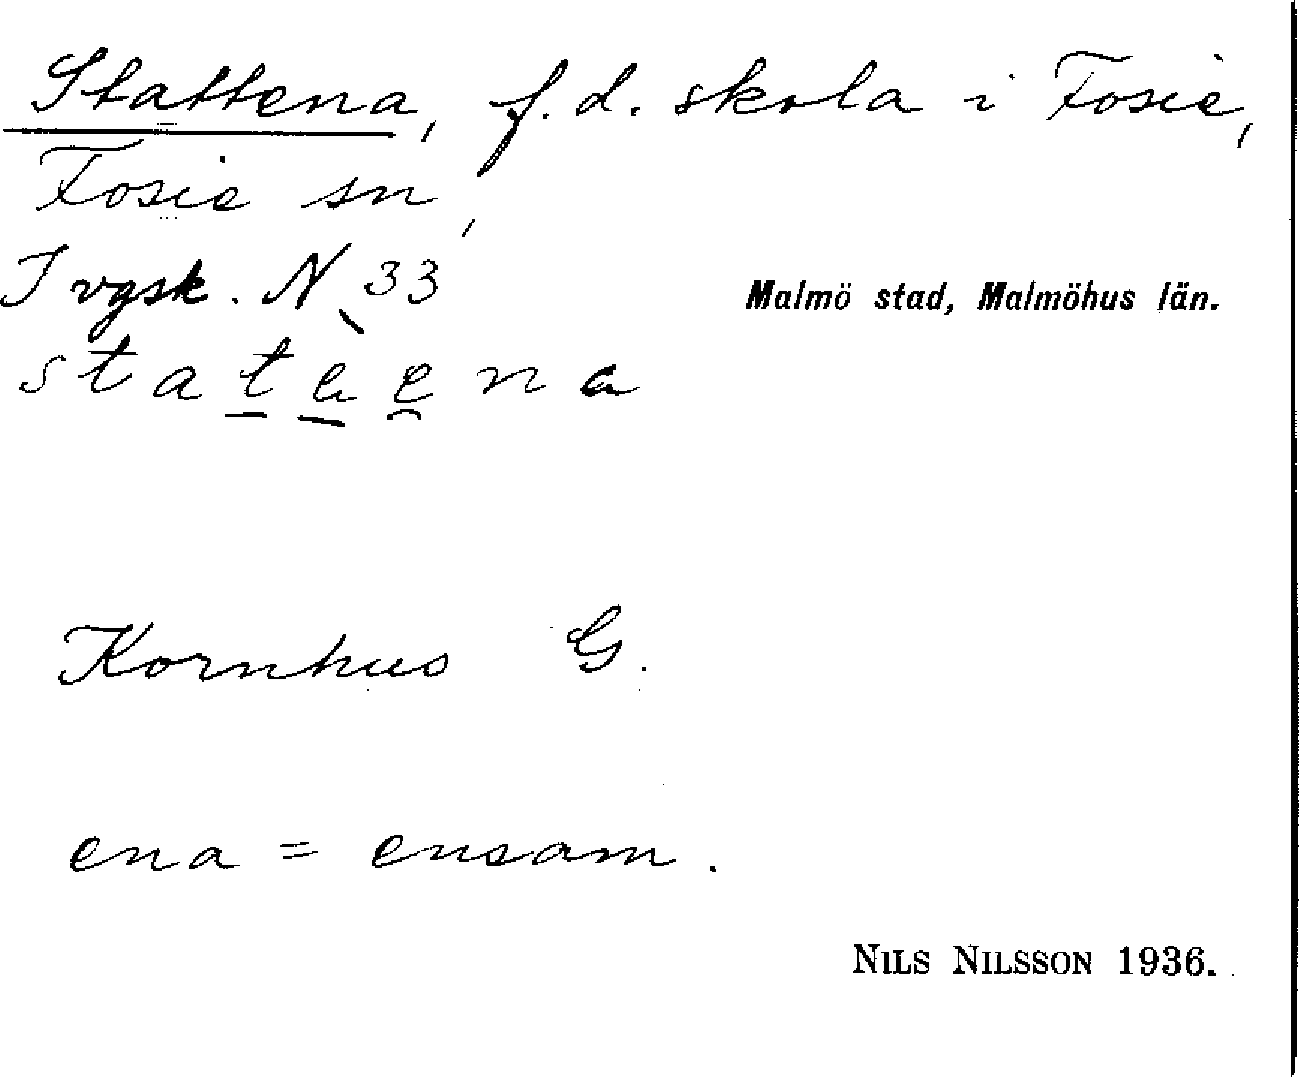 Stattena, f.d. skola i Fosie,
Fosie sn,
I vgsk. N 33
Malmö stad, Malmöhus län.
Kornhus G.
ena = ensam.
NILS NILSSON 1936.